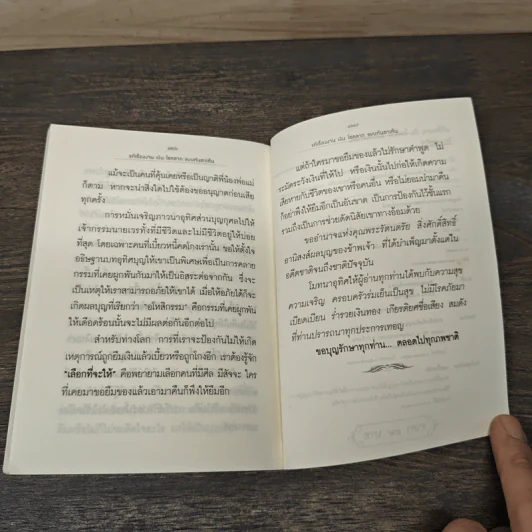 แก้เรื่องงาน เงิน โชคลาภ ของกินชาตินี้
แม้จะเป็นคนที่คุ้นเคยหรือเป็นญาติพี่น้องพ่อแม่
ก็ตาม หากจะนำสิ่งใดไปใช้ต้องขออนุญาตก่อนเสีย
ทุกครั้ง
การหมั่นเจริญภาวนาอุทิศส่วนบุญกุศลไปให้
เจ้ากรรมนายเวรทั้งที่มีชีวิตและไม่มีชีวิตอยู่ให้บ่อย
ที่สุด โดยเฉพาะคนที่เบี้ยวหนี้คดโกงเรานั้น ขอให้ตั้งใจ
อธิษฐานบทอุทิศบุญให้เขาเป็นพิเศษเพื่อเป็นการคลาย
กรรมที่เคยผูกพันกันมาให้เป็นอิสระต่อจากกัน ซึ่งจะ
เป็นเหตุให้เราสามารถอภัยให้เขาได้ เมื่อให้อภัยได้ก็จะ
เกิดผลบุญที่เรียกว่า "อโหสิกรรม" คือกรรมที่เคยผูกพัน
ให้เดือดร้อนนั้นจะไม่มีผลต่อกันอีกต่อไป
สำหรับทางโลก การที่เราจะป้องกันไม่ให้เกิด
เหตุการณ์ถูกยืมเงินแล้วเบี้ยวหรือถูกโกงอีก เราต้องรู้จัก
"เลือกที่จะให้" คือพยายามเลือกคนที่มีศีล มีสัจจะ ใคร
ที่เคยมาขอยืมของแล้วเอามาคืนก็พึงให้ยืมอีก
แก้เรื่องงาน เงิน โชคลาภ ของกินชาตินี้
แต่ถ้าใครมาขอยืมของแล้วไม่รักษาคำพูด ไม่
ระมัดระวังเงินที่ให้ไป หรือเงินนั้นไปก่อให้เกิดความ
เสียหายกับชีวิตของเขาหรือคนอื่น หรือไม่ยอมนำมาคืน
ก็อย่าพึงให้ยืมอีกเป็นอันขาด เป็นการป้องกันไว้ชั้นแรก
รวมถึงเป็นการช่วยดัดนิสัยเขาทางอ้อมด้วย
ขออำนาจแห่งคุณพระรัตนตรัย สิ่งศักดิ์สิทธิ์
อานิสงส์ผลบุญของข้าพเจ้า ที่ได้บำเพ็ญมาตั้งแต่ใน
อดีตชาติจนถึงชาติปัจจุบัน
โมทนาอุทิศให้ผู้อ่านทุกท่านได้พบกับความสุข
ความเจริญ ครอบครัวร่มเย็นเป็นสุข ไม่มีโรคภัยมา
เบียดเบียน ร่ำรวยเงินทอง เกียรติยศชื่อเสียง สมดัง
ที่ท่านปรารถนาทุกประการเทอญ
ขอบุญรักษาทุกท่าน... ตลอดไปทุกภพชาติ